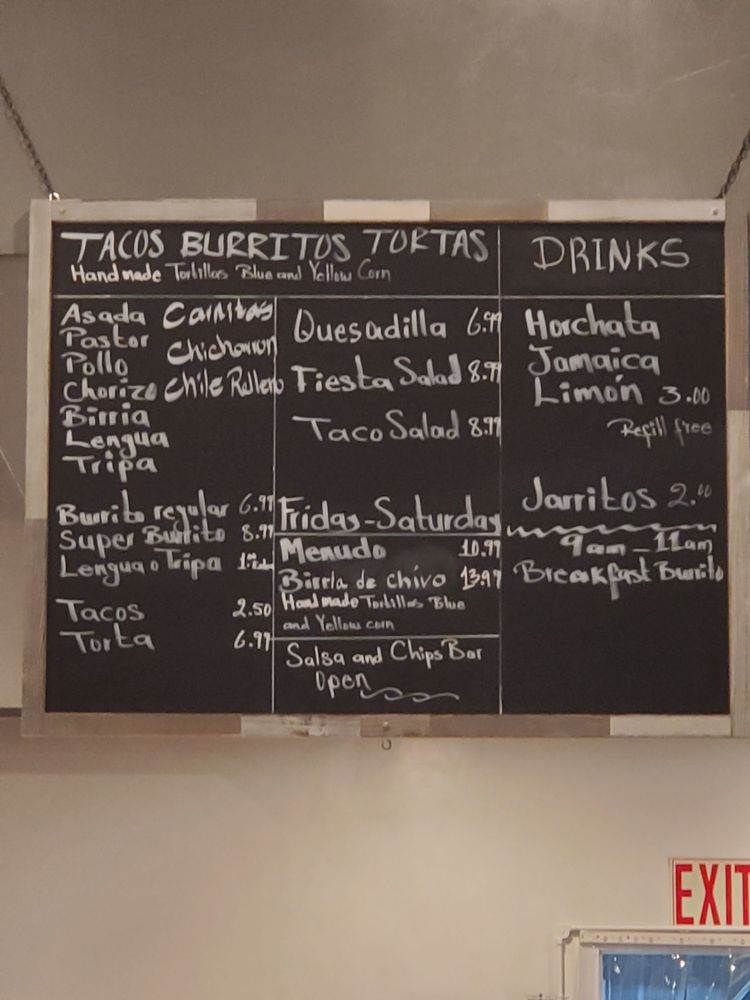 TACOS BURRITOS TORTAS
Handmade Tortillas Blue and Yellow Corn
Asada
Pastor
Pollo
Chorizo
Birria
Lengua
Tripa
Carnitas
Chicharron
Chile Relleno
Burrito regular 6.99
Super Burrito 8.99
Lengua o Tripa
Tacos 2.50
Torta 6.99
Quesadilla 6.99
Fiesta Salad 8.99
Taco Salad 8.99
Fridas-Saturday
Menudo 10.99
Birria de chivo 13.99
Handmade Tortillas Blue
and Yellow corn
Salsa and Chips Bar
Open
DRINKS
Horchata
Jamaica
Limón 3.00
Refill free
Jarritos 2.00
9am-11am
Breakfast Burrito
EXIT